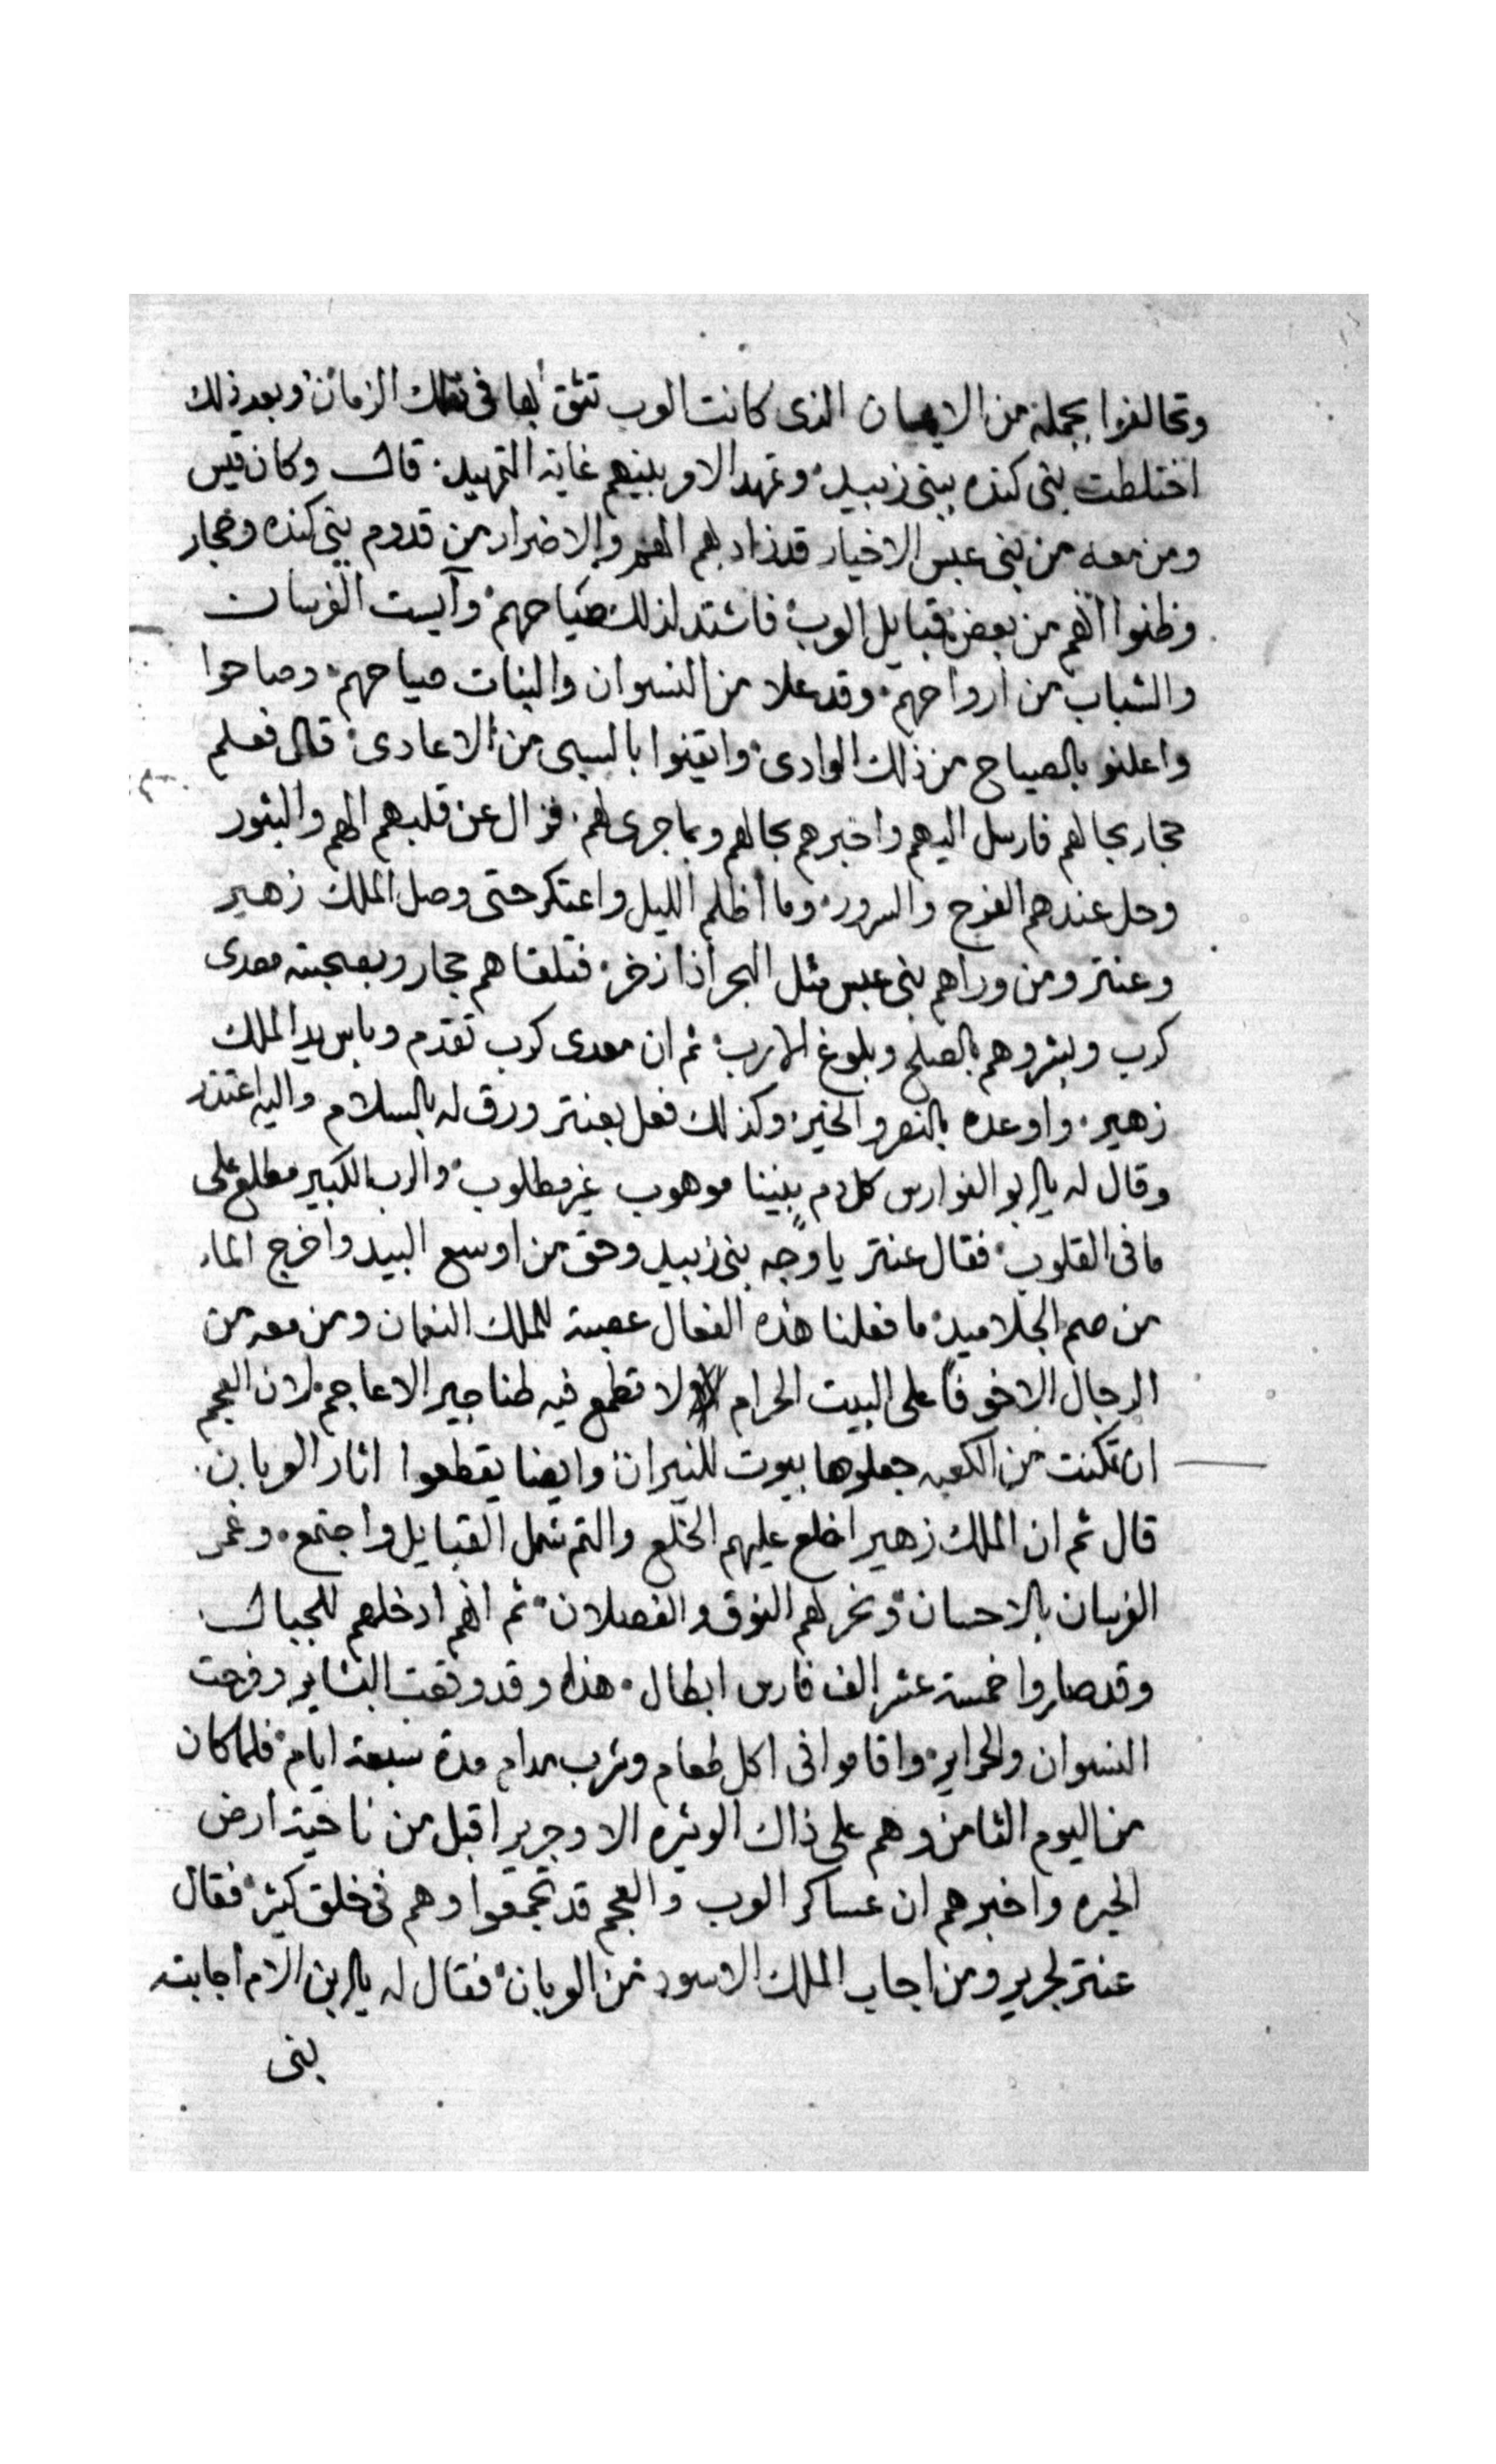 وتحالفوا بجملة من الايمان الذى كانت العرب تثق بها فى تلك الزمان وبعد ذلك
اختلطت بنى كنده ببنى زبيد وتمهد الامر بينهم غاية التمهيد قال وكان قيس
ومن معه من بنى عبس الاخيار قد زاد بهم الهم والاضرار من قدوم بنى كنده وحجار
وظنوا انهم من بعض قبايل العرب فاشتد لذلك صياحهم وآيست الفرسان
والشباب من ارواحهم وقد علا من النسوان والبنات صياحهم وصاحوا
واعلنو بالصياح من ذلك الوادى وايقنوا بالسبى من الاعادى قال فعلم
حجار بحالهم فارسل اليهم واخبرهم بحالهم وبما جرى لهم فزال عن قلبهم الهم والثبور
وحل عندهم الفرح والسرور وما اظلم الليل واعتكر حتى وصل الملك زهير
وعنتر ومن وراهم بنى عبس مثل البحر اذا زخر فتلقاهم حجار وبصحبته معدى
كرب وبشروهم بالصلح وبلوغ الارب ثم ان معدى كرب تقدم وباس يد الملك
زهير واوعده بالنصر والخير وكذلك فعل بعنتر ورق له بالسلام واليه اعتذر
وقال له يابو الفوارس كل دم بيننا موهوب غير مطلوب والرب الكبير مطلع على
ما فى القلوب فقال عنتر يا وجه بنى زبيد وحق من اوسع البيد واخرج الماء
من صم الجلاميد ما فعلنا هذه الفعال عصبية للملك النعمان ومن معه من
الرجال الا خوفا على البيت الحرام ولا تطمع فيه طناجير الاعاجم لان العجم
ان تمكنت من الكعبه جعلوها بيوت للنيران وايضا يقطعوا اثار العربان
قال ثم ان الملك زهير اخلع عليهم الخلع والتم شمل القبايل واجتمع وغمر
الفرسان بالاحسان ونحر لهم النوق والفصلان ثم انهم ادخلهم للجبال
وقد صاروا خمسة عشر الف فارس ابطال هذا وقد وقعت البشاير وفرحت
النسوان والحراير واقاموا فى اكل طعام وشرب مدام مدة سبعة ايام فلما كان
من اليوم الثامن وهم على ذاك الوتيره الا وجرير اقبل من ناحية ارض
الحيره واخبرهم ان عساكر العرب والعجم قد تجمعوا وهم فى خلق كثير فقال
عنتر لجرير ومن اجاب الملك الاسود من العربان فقال له يابن الام اجابته
بنى